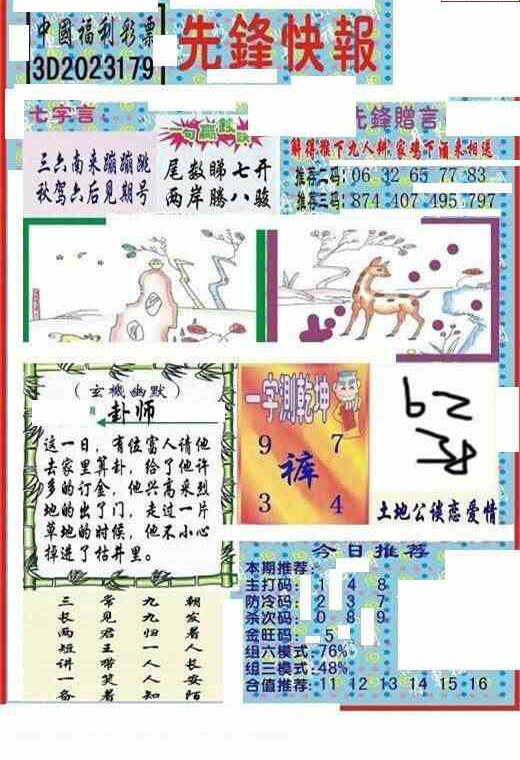 中國福利彩票
3D2023179
先鋒快報
七字言
三六南来蹦蹦跳
秋驾六后见期号
一句赢钱
尾数睇七开
两岸腾八骏
先鋒贈言
解得猴下九人耕.家鸡下酒来相送
推荐二码:06 32 65 77 83
推荐三码:874 407 495.797
(玄機幽默)
卦师
这一日,有位富人请他
去家里算卦,给了他许
多的订金,他兴高采烈
地的出了门,走过一片
草地的时候,他不小心
掉进了枯井里。
一字測乾坤
9 7
裤
3 4
土地公谈恋爱情
三长两短讲一备
常见君王带笑者
九九归一人人知
朝发者人长安陌
今日推荐
本期推荐:
主打码: 1 4 8
防冷码: 2 3 7
杀次码: 0 8 9
金旺码: 5
组六模式:76%
组三模式:48%
合值推荐:11 12 13 14 15 16